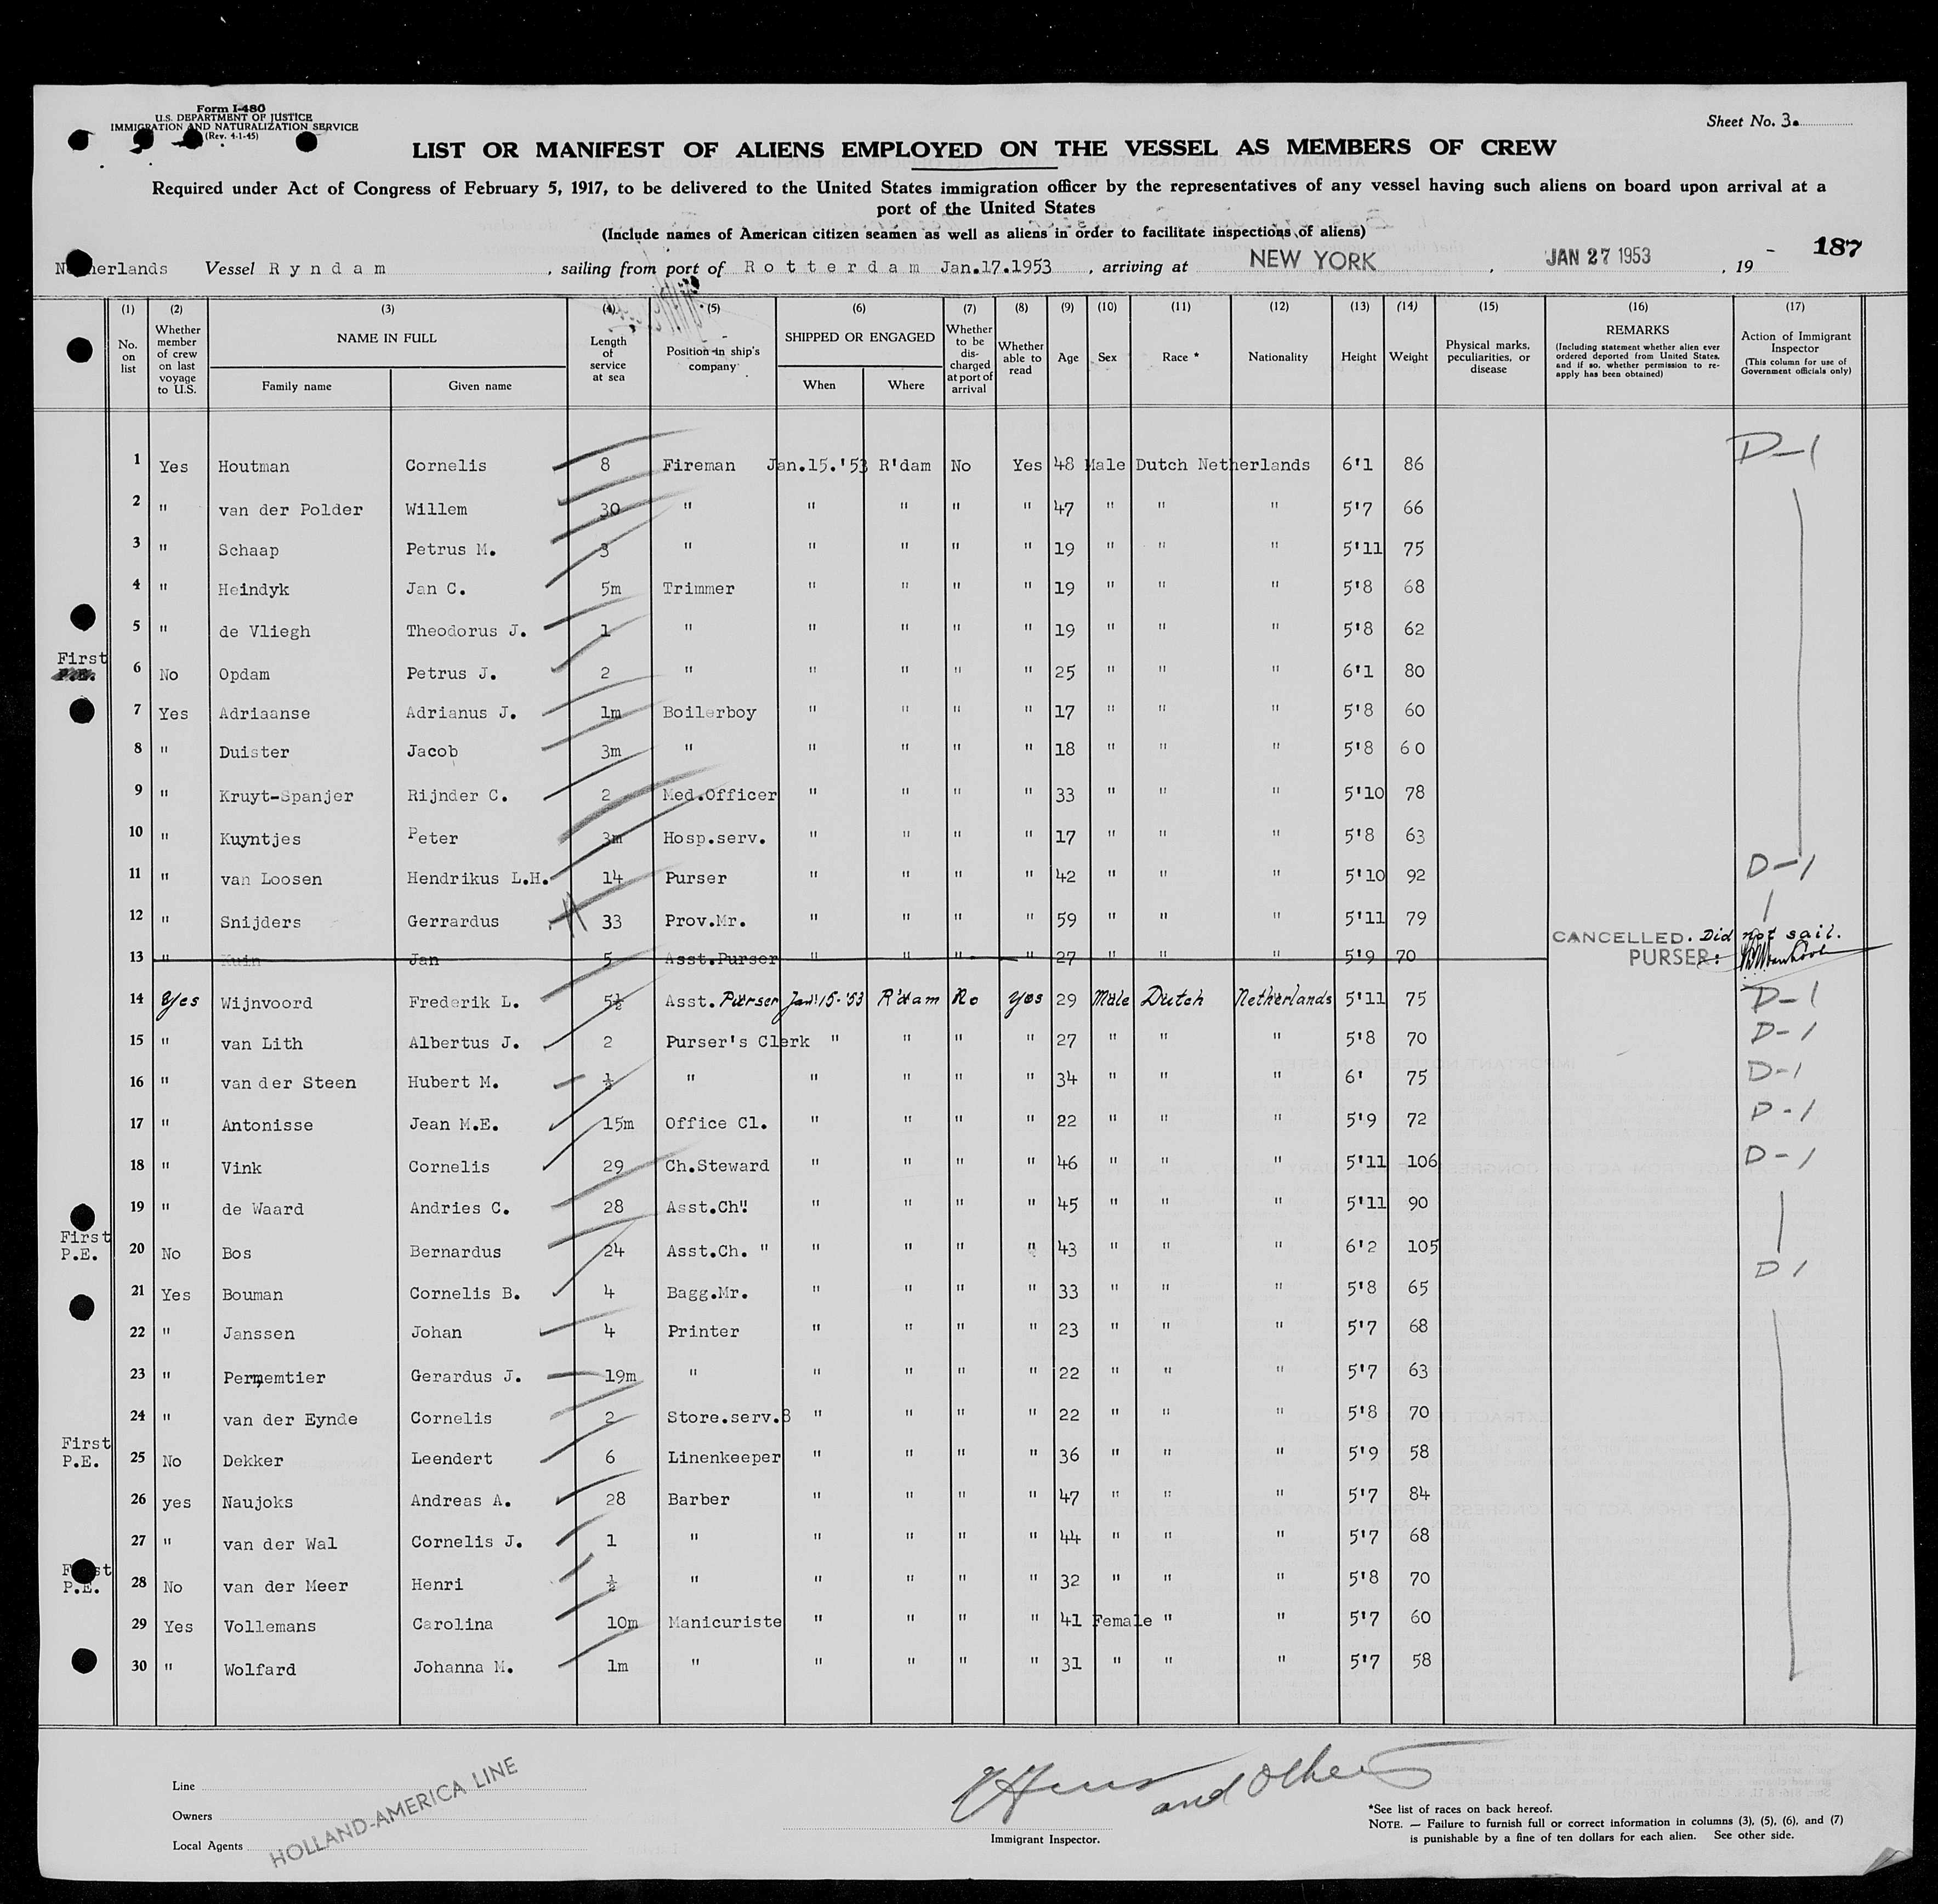 Form I-480
U.S. DEPARTMENT OF JUSTICE
IMMIGRATION AND NATURALIZATION SERVICE
(Rev. 4-1-45)
Sheet No. 3.
LIST OR MANIFEST OF ALIENS EMPLOYED ON THE VESSEL AS MEMBERS OF CREW
Required under Act of Congress of February 5, 1917, to be delivered to the United States immigration officer by the representatives of any vessel having such aliens on board upon arrival at a
port of the United States
(Include names of American citizen seamen as well as aliens in order to facilitate inspections of aliens)
187
Netherlands Vessel Ryndam , sailing from port of Rotterdam Jan.17.1953 , arriving at NEW YORK , JAN 27 1953 , 19
(1) (2) (3) (4) (5) (6) (7) (8) (9) (10) (11) (12) (13) (14) (15) (16) (17)
No. on list
Whether member of crew on last voyage to U.S.
NAME IN FULL
Family name Given name
Length of service at sea
Position in ship's company
SHIPPED OR ENGAGED
When Where
Whether to be discharged at port of arrival
Whether able to read
Age Sex Race * Nationality Height Weight
Physical marks, peculiarities, or disease
REMARKS
(Including statement whether alien ever ordered deported from United States, and if so, whether permission to re-apply has been obtained)
Action of Immigrant Inspector
(This column for use of Government officials only)
1 Yes Houtman Cornelis 8 Fireman Jan.15.'53 R'dam No Yes 48 Male Dutch Netherlands 6'1 86 D-1
2 " van der Polder Willem 30 " " " " " 47 " " " 5'7 66
3 " Schaap Petrus M. 3 " " " " " 19 " " " 5'11 75
4 " Heindyk Jan C. 5m Trimmer " " " " 19 " " " 5'8 68
5 " de Vliegh Theodorus J. 1 " " " " " 19 " " " 5'8 62
First P.E. 6 No Opdam Petrus J. 2 " " " " " 25 " " " 6'1 80
7 Yes Adriaanse Adrianus J. 1m Boilerboy " " " " 17 " " " 5'8 60
8 " Duister Jacob 3m " " " " " 18 " " " 5'8 60
9 " Kruyt-Spanjer Rijnder C. 2 Med.Officer " " " " 33 " " " 5'10 78
10 " Kuyntjes Peter 3m Hosp.serv. " " " " 17 " " " 5'8 63
11 " van Loosen Hendrikus L.H. 14 Purser " " " " 42 " " " 5'10 92 D-1
12 " Snijders Gerrardus 33 Prov.Mr. " " " " 59 " " " 5'11 79
CANCELLED. Did not sail.
13 " Kuin Jan 5 Asst.Purser " " " " 27 " " " 5'9 70 PURSER:
14 Yes Wijnvoord Frederik L. 5½ Asst. Purser Jan. 15-'53 R'dam No Yes 29 Male Dutch Netherlands 5'11 75 D-1
15 " van Lith Albertus J. 2 Purser's Clerk " " " " 27 " " " 5'8 70 D-1
16 " van der Steen Hubert M. ½ " " " " " 34 " " " 6' 75 D-1
17 " Antonisse Jean M.E. 15m Office Cl. " " " " 22 " " " 5'9 72 D-1
18 " Vink Cornelis 29 Ch.Steward " " " " 46 " " " 5'11 106 D-1
19 " de Waard Andries C. 28 Asst.Ch." " " " " 45 " " " 5'11 90
First P.E. 20 No Bos Bernardus 24 Asst.Ch. " " " " " 43 " " " 6'2 105 D 1
21 Yes Bouman Cornelis B. 4 Bagg.Mr. " " " " 33 " " " 5'8 65
22 " Janssen Johan 4 Printer " " " " 23 " " " 5'7 68
23 " Permemtier Gerardus J. 19m " " " " " 22 " " " 5'7 63
24 " van der Eynde Cornelis 2 Store.serv.B " " " " 22 " " " 5'8 70
First P.E. 25 No Dekker Leendert 6 Linenkeeper " " " " 36 " " " 5'9 58
26 yes Naujoks Andreas A. 28 Barber " " " " 47 " " " 5'7 84
27 " van der Wal Cornelis J. 1 " " " " " 44 " " " 5'7 68
First P.E. 28 No van der Meer Henri ½ " " " " " 32 " " " 5'8 70
29 Yes Vollemans Carolina 10m Manicuriste " " " " 41 Female " " 5'7 60
30 " Wolfard Johanna M. 1m " " " " " 31 " " " 5'7 58
Line
Owners
Local Agents
HOLLAND-AMERICA LINE
and others
Immigrant Inspector.
*See list of races on back hereof.
NOTE. — Failure to furnish full or correct information in columns (3), (5), (6), and (7)
is punishable by a fine of ten dollars for each alien. See other side.